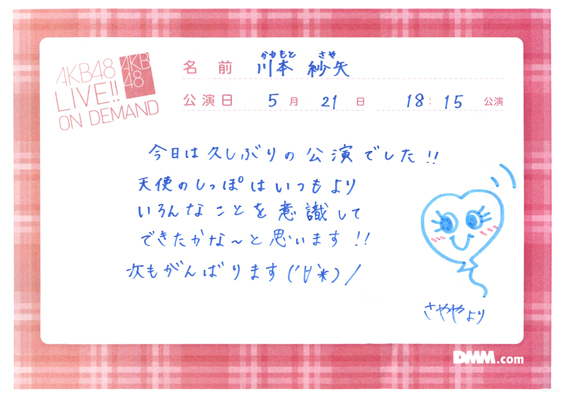 AKB48
LIVE!!
ON DEMAND
AKB
48
名前 川本 紗矢
かわもと さや
公演日 5月 21日 18:15 公演
今日は久しぶりの公演でした!!
天使のしっぽはいつもより
いろんなことを意識して
できたかな〜と思います!!
次もがんばります('∀'*)/
さややより
DMM.com